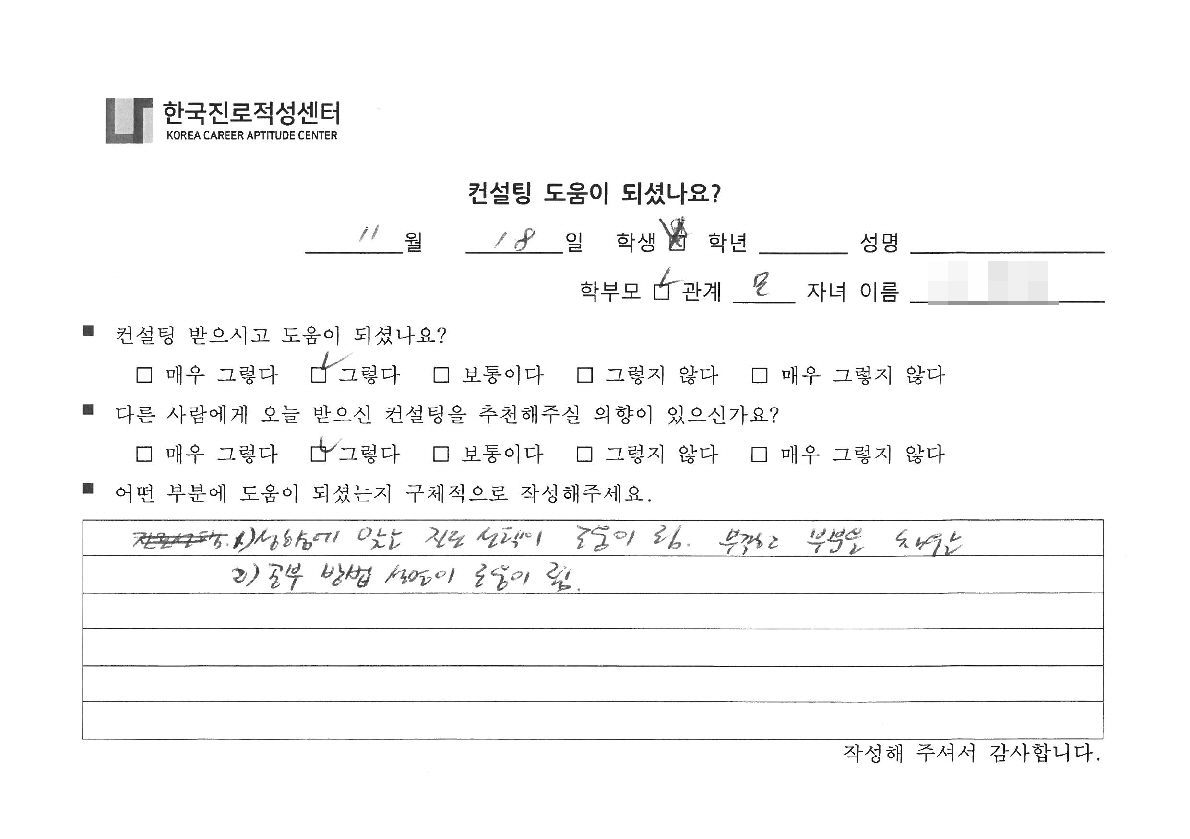 한국진로적성센터
KOREA CAREER APTITUDE CENTER
컨설팅 도움이 되셨나요?
11 월 18 일 학생 학년 성명
학부모 관계 모 자녀 이름
■ 컨설팅 받으시고 도움이 되셨나요?
□ 매우 그렇다 ☑ 그렇다 □ 보통이다 □ 그렇지 않다 □ 매우 그렇지 않다
■ 다른 사람에게 오늘 받으신 컨설팅을 추천해주실 의향이 있으신가요?
□ 매우 그렇다 ☑ 그렇다 □ 보통이다 □ 그렇지 않다 □ 매우 그렇지 않다
■ 어떤 부분에 도움이 되셨는지 구체적으로 작성해주세요.
1) 성향에 맞는 진로 선택이 도움이 됨. 부족한 부분을
2) 공부 방법 설명이 도움이 됨.
작성해 주셔서 감사합니다.